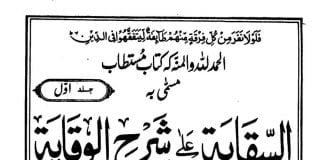 فَلَوْلَا نَفَرَ مِنْ كُلِّ فِرْقَةٍ مِنْهُمْ طَائِفَةٌ لِيَتَفَقَّهُوا فِي الدِّينِ
الحمد للہ والمنہ کہ کتاب مستطاب
مسمّٰی بہ
جلد اوّل
السقایۃ علیٰ شرح الوقایۃ